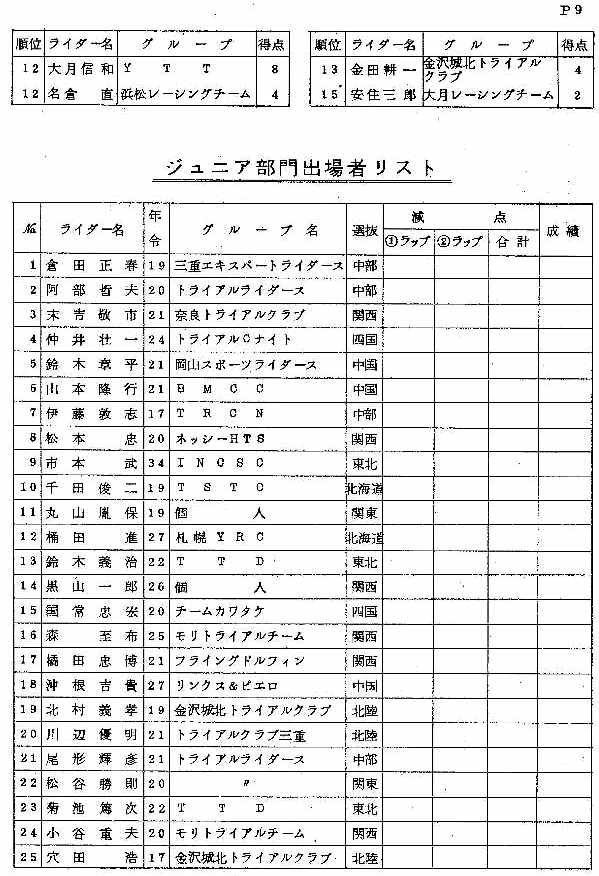 P9
順位 ライダー名 グループ 得点
12 大月信和 YTT 8
12 名倉 直 浜松レーシングチーム 4
順位 ライダー名 グループ 得点
13 金田耕一 金沢城北トライアルクラブ 4
15 安住三郎 大月レーシングチーム 2
ジュニア部門出場者リスト
№ ライダー名 年令 グループ名 選抜 減点 成績
①ラップ ②ラップ 合計
1 倉田正春 19 三重エキスパートライダース 中部
2 阿部哲夫 20 トライアルライダース 中部
3 末吉敬市 21 奈良トライアルクラブ 関西
4 仲井壮一 24 トライアルCナイト 四国
5 鈴木章平 21 岡山スポーツライダース 中国
6 山本隆行 21 BMCC 中国
7 伊藤敦志 17 TRCN 中部
8 松本 忠 20 ネッシーHTS 関西
9 市本 武 34 INCSC 東北
10 千田俊二 19 TSTC 北海道
11 丸山胤保 19 個人 関東
12 桶田 進 27 札幌YRC 北海道
13 鈴木義治 22 TTD 東北
14 黒山一郎 26 個人 関西
15 国常忠宏 20 チームカワタケ 四国
16 森 至布 25 モリトライアルチーム 関西
17 橘田忠博 21 フライングドルフィン 関西
18 沖根吉貴 27 リンクス&ピエロ 中国
19 北村義孝 19 金沢城北トライアルクラブ 北陸
20 川辺優明 21 トライアルクラブ三重 北陸
21 尾形輝彦 21 トライアルライダース 中部
22 松谷勝則 20 〃 関東
23 菊池篤次 22 TTD 東北
24 小谷重夫 20 モリトライアルチーム 関西
25 穴田 浩 17 金沢城北トライアルクラブ 北陸